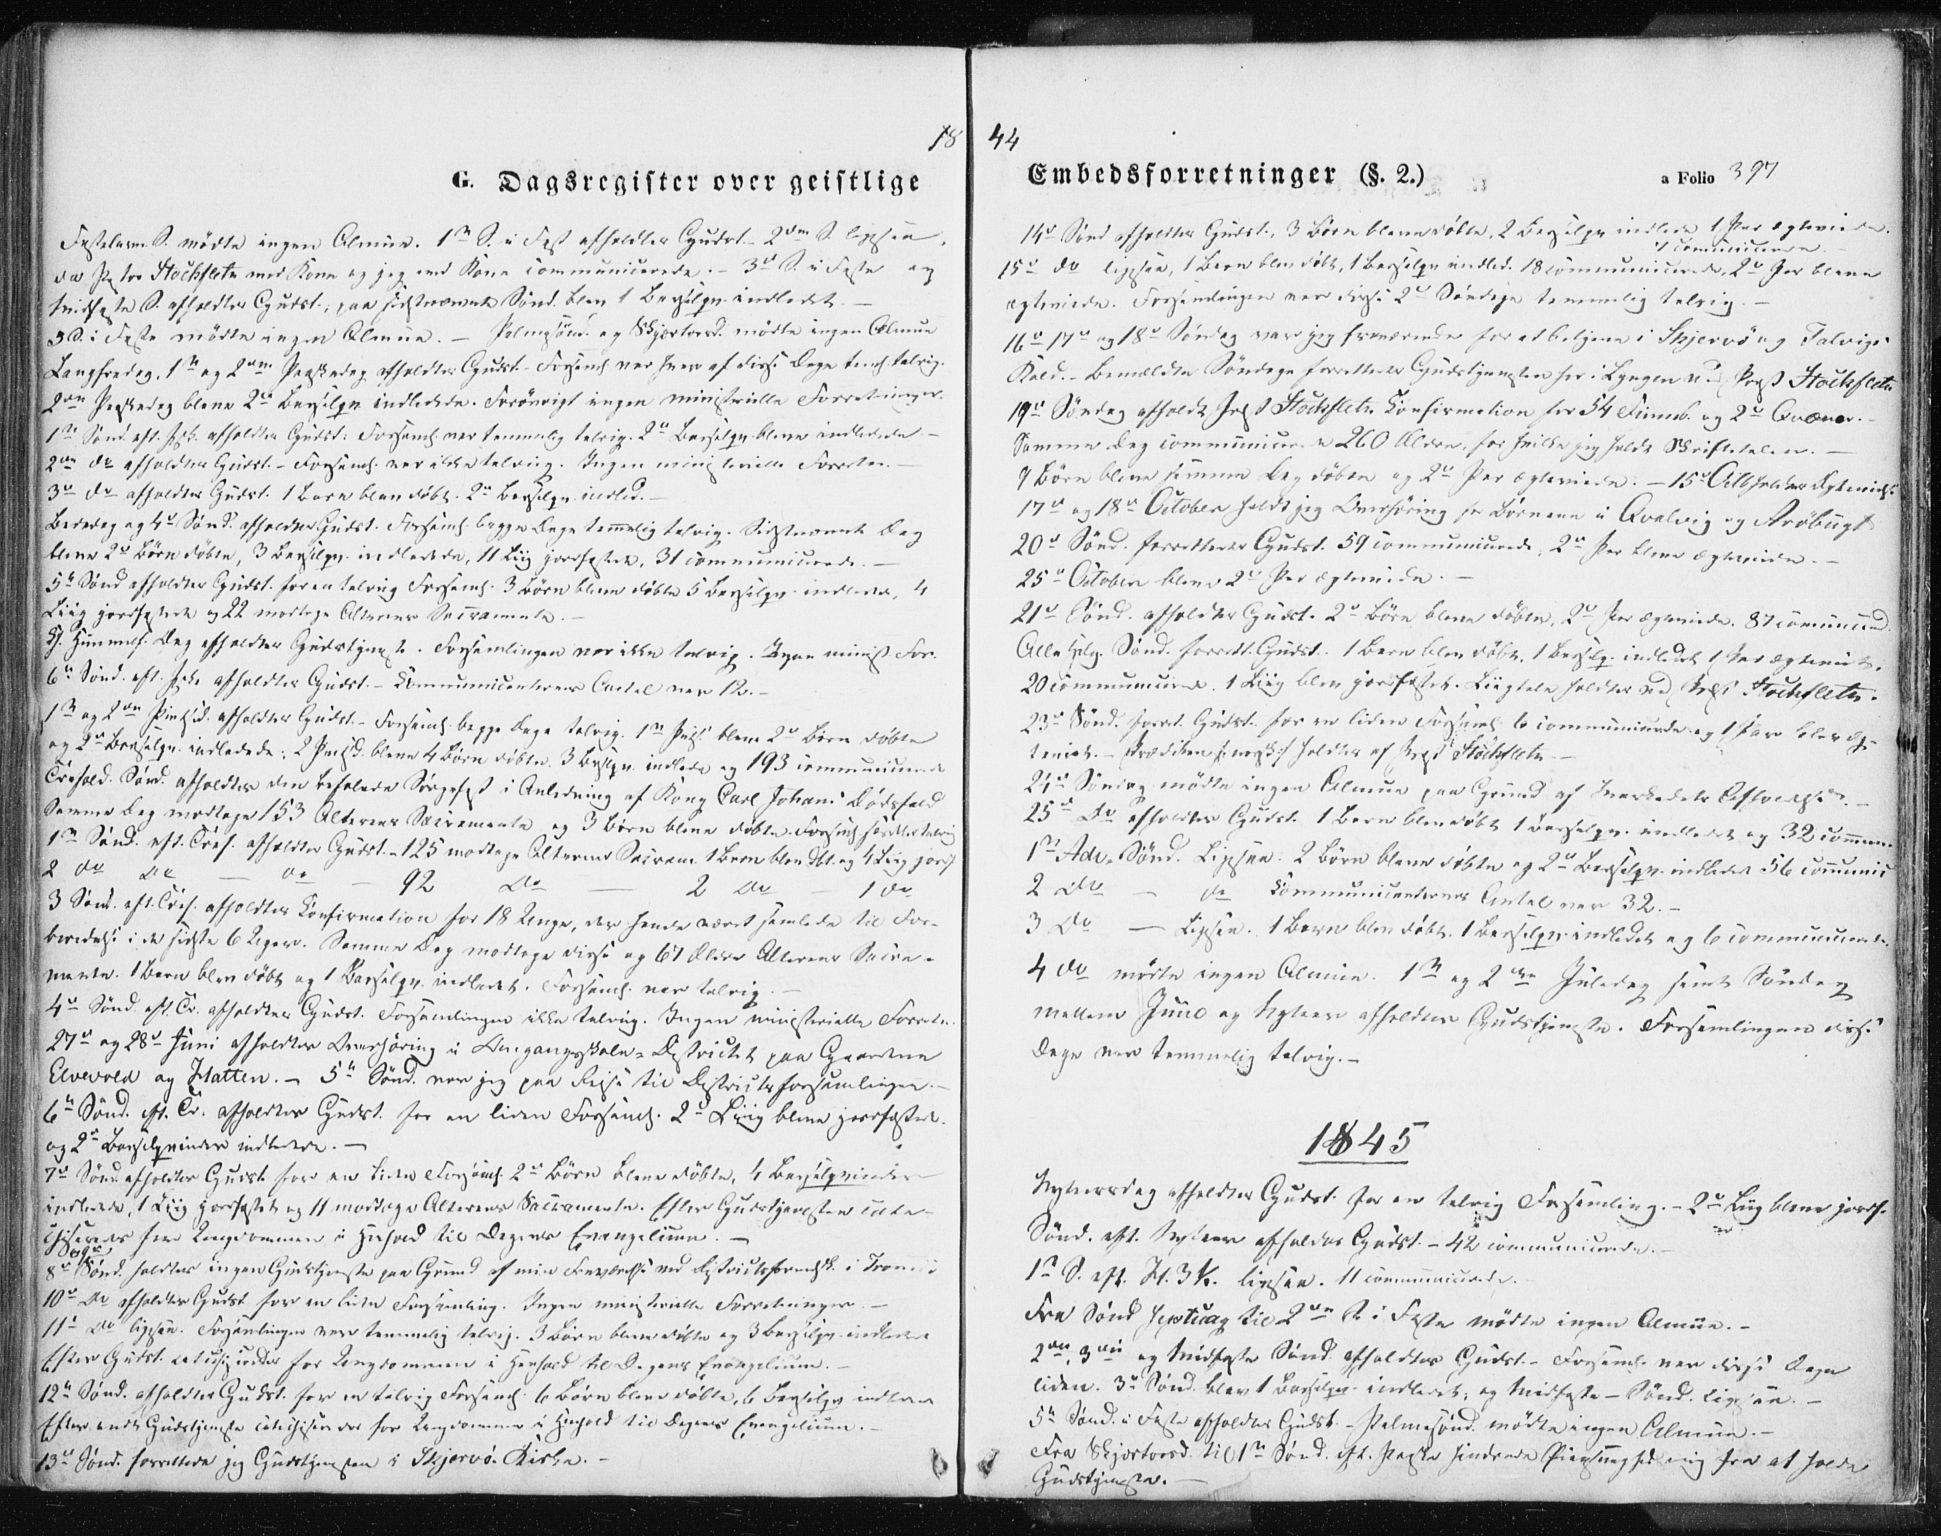 1844
G. Dagsregister over geistlige Embedsforretninger (§. 2.)
a Folio 397
Fastelavns S. mødte ingen Almue. 1ste S. i Fast afholdtes Gudst. 2den S. ligesaa,
da Pastor Stockfleth med Kone og jeg med Kone communicerede. – 3die S. i Faste og
Midfaste S. afholdtes Gudst., paa sidstnævnte Sønd. blev 1 Barselqv. indledet. –
5 S. i Faste mødte ingen Almue. – Palmesønd. og Skjærtorsd. mødte ingen Almue
Langfredag, 1ste og 2den Paaskedag afholdtes Gudst. – Forsaml. var hver af disse Dage teml. talrig.
2den Paaskedag bleve 2de Barselqv. indledede. Forøvrigt ingen ministerielle Forretninger.
1ste Sønd. eft. Psk. afholdtes Gudst. Forsaml. var temmelig talrig. 2de Barselqv. bleve indledede –
2den do afholdtes Gudst. – Forsaml. var ikke talrig. Ingen ministerielle Forretn. –
3die do afholdtes Gudst. 1 Barn blev døbt. 2de Barselqv. indled. –
Bededag og 4de Sønd. afholdtes Gudst. Forsaml. begge Dage temmelig talrig. Sidstnævnte Dag
bleve 2de Børn døbte, 3 Barselqv. indledede, 11 Liig jordfæstede, 31 communicerede. –
5te Sønd. afholdtes Gudst. for en talrig Forsaml. 3 Børn bleve døbte 5 Barselqv. indledede, 4
Liig jordfæstede og 22 modtoge Alterens Sacramente. –
Chr. Himmelf. Dag afholdtes Gudstjeneste. Forsamlingen var ikke talrig. Ingen minist. For.
6te Sønd. eft. Pske afholdtes Gudst. – Communicanternes Antal var 12. –
1ste og 2den Pintsed. afholdtes Gudst. – Forsaml. begge Dage talrig. 1ste Pints. bleve 2de Børn døbte
og 2de Barselqv. indledede; 2 Pintsd. bleve 4 Børn døbte. 3 Barselqv. indledede og 193 communicerede
Trefold. Sønd. afholdtes den befalede Sørgefest i Anledning af Kong Carl Johans Dødsfald
Samme Dag modtoge 153 Alterens Sacramente og 3 Børn bleve døbte. Forsaml. særdeles talrig
1ste Sønd. eft. Tref. afholdtes Gudst. – 125 modtoge Alterens Sacram. 1 Barn blev dbt. og 4 Liig jordf.
2 do do — do — 92 do — 2 do — 1 do
3 Sønd. eft. Tref. afholdtes Confirmation for 18 Unge, der havde været samlede til For-
beredelse i de sidste 6 Uger. Samme Dag modtoge disse og 67 Ældre Alterens Sacra-
mente. 1 Barn blev døbt og 1 Barselqv. indledet. Forsaml. var talrig. –
4de Sønd. eft. Tr. afholdtes Gudst. Forsamlingen ikke talrig. Ingen ministerielle Forretn.
27de og 28de Juni afholdtes Overhøring i Omgangsskole-Districtet paa Gaardene
Elvevold og Hatten. – 5te Sønd. var jeg paa Reise til Districtsforsamlingen. –
6te Sønd. eft. Tr. afholdtes Gudst. for en liden Forsaml. 2de Liig bleve jordfæstede
og 2de Barselqvinder indledede. –
7de Sønd. afholdtes Gudst. for en liden Forsaml. 2de Børn bleve døbte, 4 Barselqvinder
indledede, 1 Liig jordfæstet og 11 modtoge Alterens Sacramente. Efter Gudstjenesten cate-
chiseredes for Ungdommen i Henhold til Dagens Evangelium. –
8de og 9de Sønd. holdtes ingen Gudstjeneste paa Grund af min Fraværelse ved Districtsforsaml. i Tromsø
10de do afholdtes Gudst. for en liden Forsamling. Ingen ministerielle Forretninger. –
11te do ligesaa. Forsamlingen var temmelig talrig. 3 Børn bleve døbte og 3 Barselqv. indledede
Efter Gudst. catechiseredes for Ungdommen i Henhold til Dagens Evangelium. –
12te Sønd. afholdtes Gudst. for en talrig Forsaml. 6 Børn bleve døbte, 6 Barselqv. indledede
Efter endt Gudstjeneste catechiseredes for Ungdommen i Henhold til Dagens Evangelium. –
13de Sønd. forrettede jeg Gudstjenesten i Skjervø Kirke. –
14de Sønd. afholdtes Gudst., 3 Børn bleve døbte, 2 Barselqv. indledede 1 Par ægteviede.
7 communicerede –
15de do ligesaa, 1 Barn blev døbt, 1 Barselqv. indled. 18 communicerede, 2de Par bleve
ægteviede. Forsamlingen var disse 2de Søndage temmelig talrig. –
16de 17de og 18de Søndag var jeg fraværende for at betjene i Skjervø og Talvigs
Kald. – Bemældte Søndage forrettedes Gudstjenesten her i Lyngen ved Past Stockfleth
19de Søndag afholdt Past Stockfleth Confirmation for 54 Finneb. og 2de Qvæner. –
Samme Dag communicerede 260 Ældre, for hvilke jeg holdt Skriftetalen. –
9 Børn bleve samme Dag døbte og 2de Par ægteviede. – 15de Oct holdtes Ægtevielse
17de og 18de October holdt jeg Overhøring for Børnene i Qvalvig og Arøbugt
20de Sønd. forrettedes Gudst. 59 communicerede, 2de Par bleve ægteviede. –
25de October bleve 2de Par ægteviede. –
21de Sønd. afholdtes Gudst. 2de Børn bleve døbte, 2de Par ægteviede. 87 communiced.
Alle Helg. Sønd. forrett. Gudst. 1 Barn blev døbt, 1 Barselqv. indledet 1 Par ægteviet.
20 communicerede. 1 Liig blev jordfæstet. Liigtale holdtes ved Past Stockfleth.
23de Sønd. forret. Gudst. for en liden Forsaml. 6 communicerede og 1 Par blev æg-
teviet. – Prædiken (norsk) holdtes af Past Stockfleth –
24de Søndag mødte ingen Almue paa Grund af Markedets Afholdelse. –
25de do afholdtes Gudst. 1 Barn blev døbt 1 Barselqv. indledet og 32 commun.
1ste Adv. Sønd. Ligesaa. 2 Børn bleve døbte og 2de Barselqv. indledede 56 communic
2 do — do Communicanternes Antal var 32. –
3 do — Ligesaa. 1 Barn blev døbt. 1 Barselqv. indledet og 6 communicerede.
4 do mødte ingen Almue. 1ste og 2den Juledag samt Søndag
mellem Juul og Nytaar afholdtes Gudstjeneste. Forsamlingen disse
Dage var temmelig talrig. –
1845
Nytaarsdag afholdtes Gudst. for en talrig Forsamling. – 2de Liig bleve jordf.
Sønd. eft. Nytaar afholdtes Gudst. – 42 communicerede. –
1ste S. eft. H. 3 K. ligesaa. 11 communicerede. –
Fra Sønd Septuag til 2den S. i Faste mødte ingen Almue. –
2den, 3die og Midfaste Sønd. afholdtes Gudst. – Forsaml. var disse Dage
liden. 3die Sønd. blev 1 Barselqv. indledet, og Midfaste-Sønd. ligesaa. –
5te Sønd. i Faste afholdtes Gudst. – Palmesønd. mødte ingen Almue. –
Fra Skjærtorsd. til 1ste Sønd. eft. Paaske hindrede mig fra at holde
Gudstjeneste. –